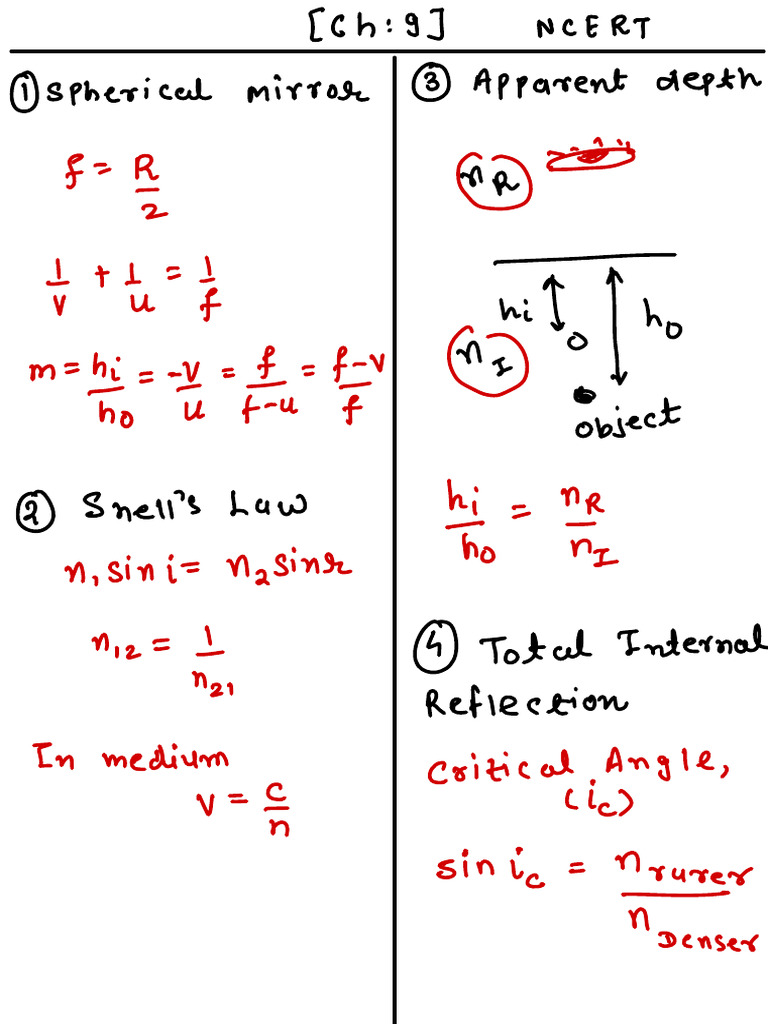 [Ch:9] NCERT
① Spherical mirror
f = R/2
1/v + 1/u = 1/f
m = hi/ho = -v/u = f/f-u = f-v/f
② Snell's Law
n₁ sin i = n₂ sin r
n₁₂ = 1/n₂₁
In medium
v = c/n
③ Apparent depth
nR
hi
ho
nI
O
object
hi/ho = nR/nI
④ Total Internal
Reflection
Critical Angle,
(ic)
sin ic = nrarer/nDenser